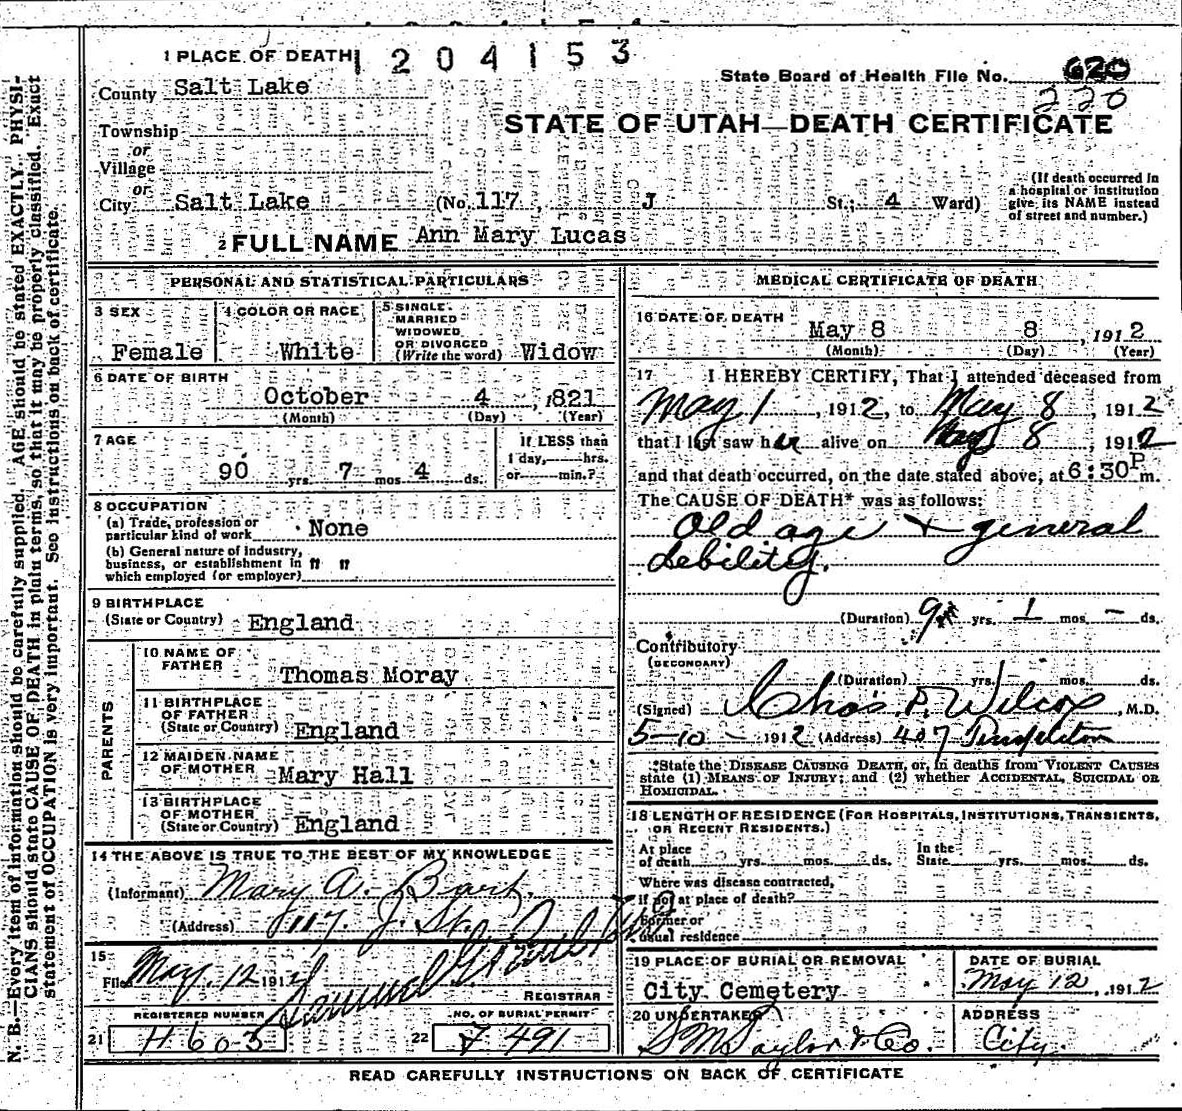 1 PLACE OF DEATH
1204153
State Board of Health File No. 620
220
County Salt Lake
STATE OF UTAH—DEATH CERTIFICATE
Township
or
Village
or
City Salt Lake (No. 117, J St.; 4 Ward)
(If death occurred in a hospital or institution give its NAME instead of street and number.)
2 FULL NAME Ann Mary Lucas
PERSONAL AND STATISTICAL PARTICULARS
3 SEX
Female
4 COLOR OR RACE
White
5 SINGLE, MARRIED WIDOWED OR DIVORCED (Write the word) Widow
6 DATE OF BIRTH
October 4, 1821
(Month) (Day) (Year)
7 AGE
90 yrs. 7 mos. 4 ds.
If LESS than 1 day, hrs. or min.?
8 OCCUPATION
(a) Trade, profession or particular kind of work None
(b) General nature of industry, business, or establishment in which employed (or employer) " "
9 BIRTHPLACE
(State or Country) England
PARENTS
10 NAME OF FATHER Thomas Moray
11 BIRTHPLACE OF FATHER (State or Country) England
12 MAIDEN NAME OF MOTHER Mary Hall
13 BIRTHPLACE OF MOTHER (State or Country) England
14 THE ABOVE IS TRUE TO THE BEST OF MY KNOWLEDGE
(Informant) Mary A.
(Address) 117. J. St.
15
Filed May, 12 191
REGISTRAR
REGISTERED NUMBER
21 H 603
NO. OF BURIAL PERMIT
22 F 491
MEDICAL CERTIFICATE OF DEATH
16 DATE OF DEATH
May 8 8, 1912
(Month) (Day) (Year)
17 I HEREBY CERTIFY, That I attended deceased from
May 1, 1912, to May 8, 1912
that I last saw her alive on May 8 1912
and that death occurred, on the date stated above, at 6:30P m.
The CAUSE OF DEATH* was as follows:
Old age + general
debility.
(Duration) yrs. 1 mos. – ds.
Contributory
(SECONDARY)
(Duration) yrs. mos. ds.
(Signed) Chas. F. Wilcox, M.D.
5-10- 1912 (Address) 407 Templeton
*State the DISEASE CAUSING DEATH, or, in deaths from VIOLENT CAUSES
state (1) MEANS OF INJURY; and (2) whether ACCIDENTAL, SUICIDAL OR
HOMICIDAL.
18 LENGTH OF RESIDENCE (FOR HOSPITALS, INSTITUTIONS, TRANSIENTS,
OR RECENT RESIDENTS.)
At place of death yrs. mos. ds. In the State yrs. mos. ds.
Where was disease contracted,
if not at place of death?
Former or
usual residence
19 PLACE OF BURIAL OR REMOVAL
City Cemetery
DATE OF BURIAL
May 12, 1912
20 UNDERTAKER
S M Taylor & Co.
ADDRESS
City.
READ CAREFULLY INSTRUCTIONS ON BACK OF CERTIFICATE
N. B.—Every item of information should be carefully supplied. AGE should be stated EXACTLY. PHYSI-
CIANS should state CAUSE OF DEATH in plain terms, so that it may be properly classified. Exact
statement of OCCUPATION is very important. See instructions on back of certificate.